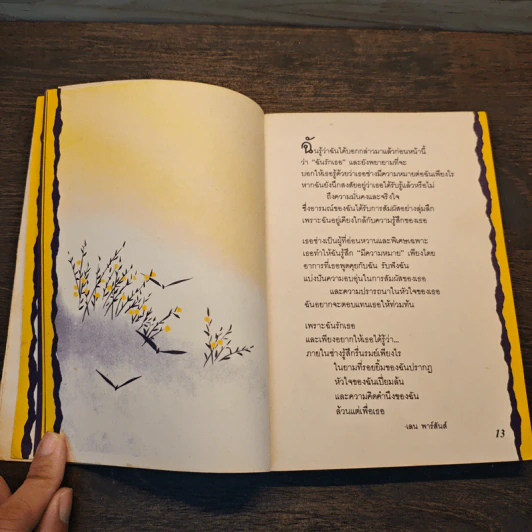 ฉันรู้ว่าฉันได้บอกกล่าวมาแล้วก่อนหน้านี้
ว่า "ฉันรักเธอ" และยังพยายามที่จะ
บอกให้เธอรู้ด้วยว่าเธอช่างมีความหมายต่อฉันเพียงไร
หากฉันยังนึกสงสัยอยู่ว่าเธอได้รับรู้แล้วหรือไม่
ถึงความมั่นคงและจริงใจ
ซึ่งอารมณ์ของฉันได้รับการสัมผัสอย่างลุ่มลึก
เพราะฉันอยู่เคียงใกล้กับความรู้สึกของเธอ
เธอช่างเป็นผู้ที่อ่อนหวานและพิเศษเฉพาะ
เธอทำให้ฉันรู้สึก "มีความหมาย" เพียงโดย
อาการที่เธอพูดคุยกับฉัน รับฟังฉัน
แบ่งปันความอบอุ่นในการสัมผัสของเธอ
และความปรารถนาในหัวใจของเธอ
ฉันอยากจะตอบแทนเธอให้ท่วมท้น
เพราะฉันรักเธอ
และเพียงอยากให้เธอได้รู้ว่า...
ภายในช่างรู้สึกรื่นรมย์เพียงไร
ในยามที่รอยยิ้มของฉันปรากฏ
หัวใจของฉันเปี่ยมล้น
และความคิดคำนึงของฉัน
ล้วนแต่เพื่อเธอ
-เลน พาร์สันส์
13